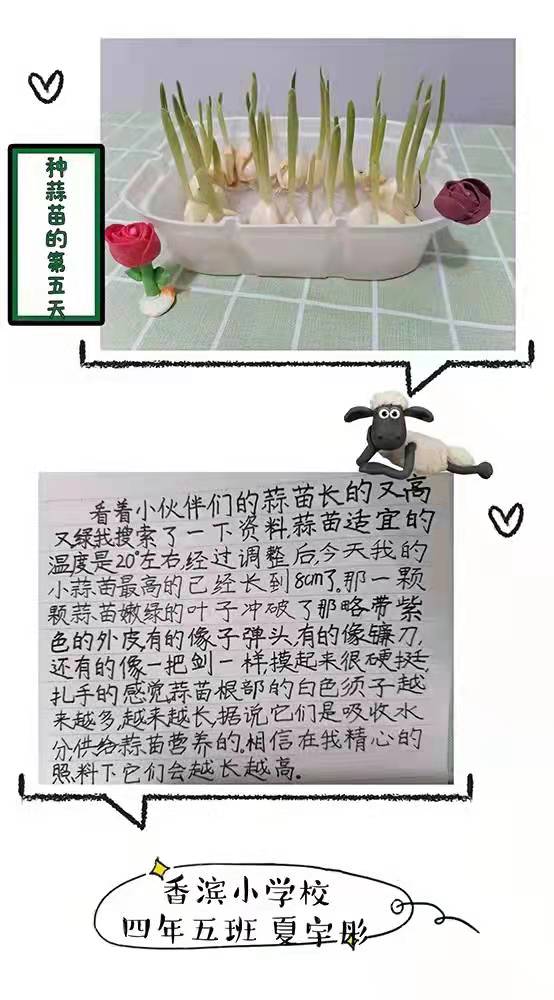 种蒜苗的第五天
看着小伙伴们的蒜苗长的又高
又绿我搜索了一下资料,蒜苗适宜的
温度是20°左右,经过调整后,今天我的
小蒜苗最高的已经长到8cm了。那一颗
颗蒜苗嫩绿的叶子冲破了那略带紫
色的外皮,有的像子弹头,有的像镰刀,
还有的像一把剑一样,摸起来很硬挺,
扎手的感觉,蒜苗根部的白色须子越
来越多,越来越长,据说它们是吸收水
分,供给蒜苗营养的。相信在我精心的
照料下它们会越长越高。
香滨小学校
四年五班 夏宇彤